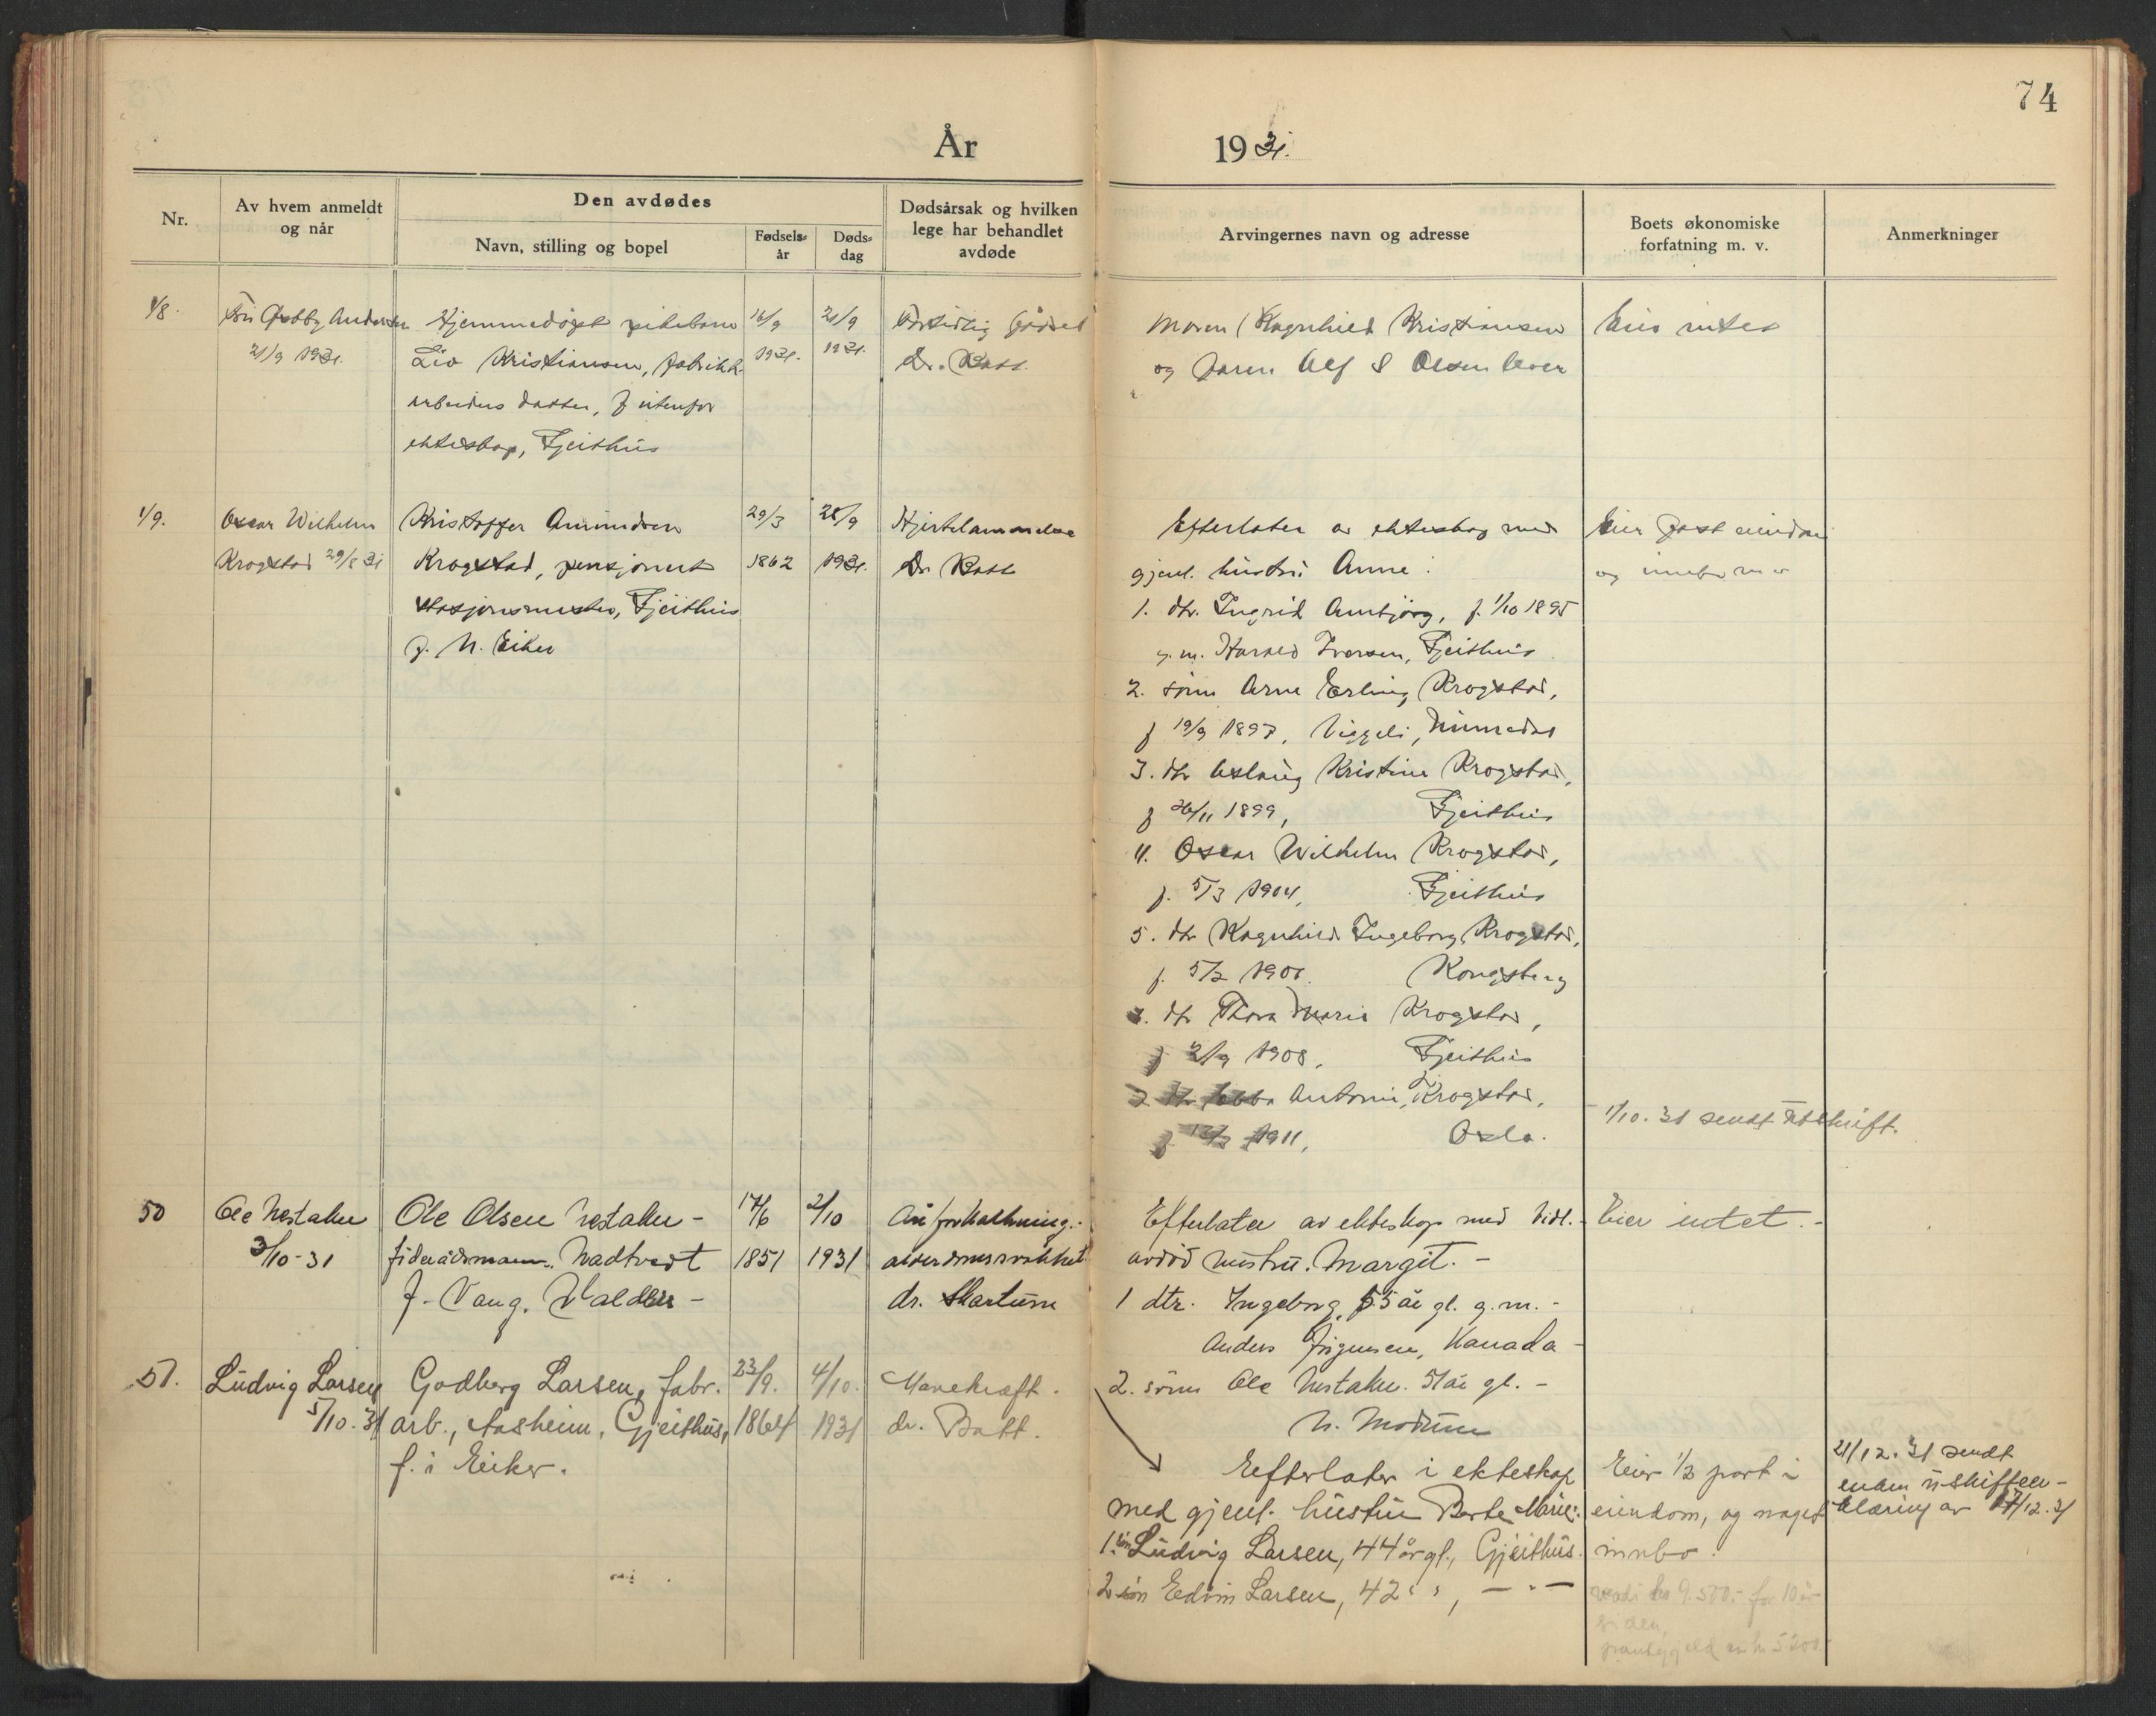 74
År 1931.
Nr.
Av hvem anmeldt
og når
Den avdødes
Navn, stilling og bopel
Fødsels-
år
Døds-
dag
Dødsårsak og hvilken
lege har behandlet
avdøde
Arvingernes navn og adresse
Boets økonomiske
forfatning m. v.
Anmerkninger
48.
21/9 1931.
Hjemmedøpt pikebarn
Liv Kristiansen, fabrikk
arbeiders datter, f utenfor
ekteskap, Gjeithus
16/9
1931.
21/9
1931.
For tidlig födsel
Dr. Batt.
Moren Ragnhild Kristiansen
og faren Alf S Olsen lever
Eier intet
49.
Oscar Wilhelm
Krogstad 29/8 31
Kristoffer Amundsen
Krogstad, pensjonert
stasjonsmester, Gjeithus
f. N. Eiker
29/3
1862
28/9
1931.
Hjertelammelse
Dr Batt
Efterlater av ekteskap med
gjenl. hustru Anne.
1. dtr. Ingrid Annbjørg, f. 1/10 1895
g. m. Harald Iversen, Gjeithus
2. sønn Arne Erling Krogstad,
f 19/9 1897, Veggli, Numedal
3. dtr Aslaug Kristine Krogstad,
f 26/11 1899, Gjeithus
4. Oscar Wilhelm Krogstad,
f. 5/3 1904, Gjeithus
5. dtr Ragnhild Ingeborg Krogstad,
f. 5/2 1906. Kongsberg
6. dtr Thora Marie Krogstad,
f 2/9 1908, Gjeithus
7 dtr Ebba Antonie Krogstad,
1911, Oslo.
Eier fast eiendom
og innbo m m
1/10. 31 sendt utskrift.
50
Ole Nestaker
3/10-31
Ole Olsen Nestaker -
føderådsmann. Nadtvedt
f. Vang. Valdres -
17/6
1851
2/10
1931
Åreforkalkning.-
alderdomssvakhet
dr. Skartum
Efterlater av ekteskap med tidl.-
avdød hustru. Margit. -
1 dtr. Ingeborg, 55 år gl. g.m. -
Anders Jørgensen, Kanada -
2. sønn Ole Nestaker. 51 år gl. -
N. Modum
Eier intet. -
51.
Ludvig Larsen
5/10. 31
Godberg Larsen, fabr.
arb., Aasheim, Gjeithus,
f. i Eiker.
23/9.
1864
4/10.
1931
Mavekræft.
dr. Batt.
Eefterlater i ekteskap
med gjenl. hustru Berte Marie:
1. søn Ludvig Larsen, 44 år gl., Gjeithus.
2 søn Eedvin Larsen, 42 " ", — " —
Eier 1/2 part i
eiendom, og noget
innbo.
verdi kr 9.500.- for 10 år
siden,
pantegjeld ca kr 5200.-
21/12. 31 sendt
enken uskifteer-
klæring av 17/12. 31